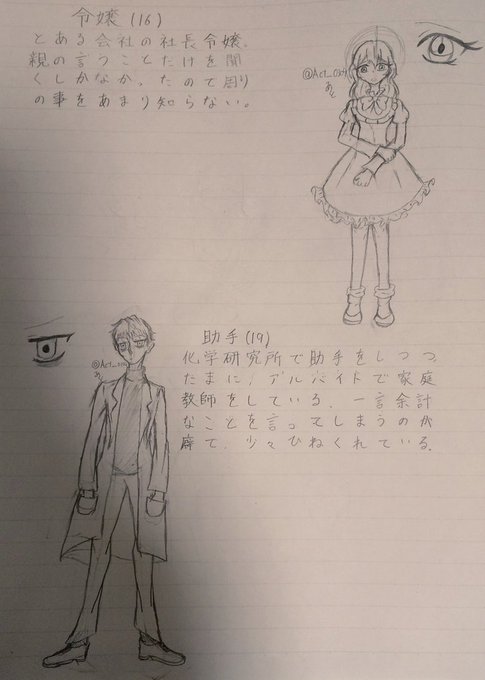 令嬢(16)
とある会社の社長令嬢。
親の言うことだけを聞
くしかなか、たので周り
の事をあまり知らない。
助手(19)
化学研究所で助手をしつつ、
たまにアルバイトで家庭
教師をしている。一言余計
なことを言ってしまうのが
癖で、少々ひねくれている。